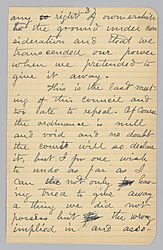 3)
any right of ownership
the ground under con
sideration and that we
transcended our power
when we pretended to
give it away.
This is the last meet
ing of this council and
two late to repeal. Of course
the ordinance is null
and void and no doubt
the court will so declare
it, but I for one wish
to undo as far as I
can not only having
tried to give away
a thing we did not
possess but the wrong
implied in it and asso-